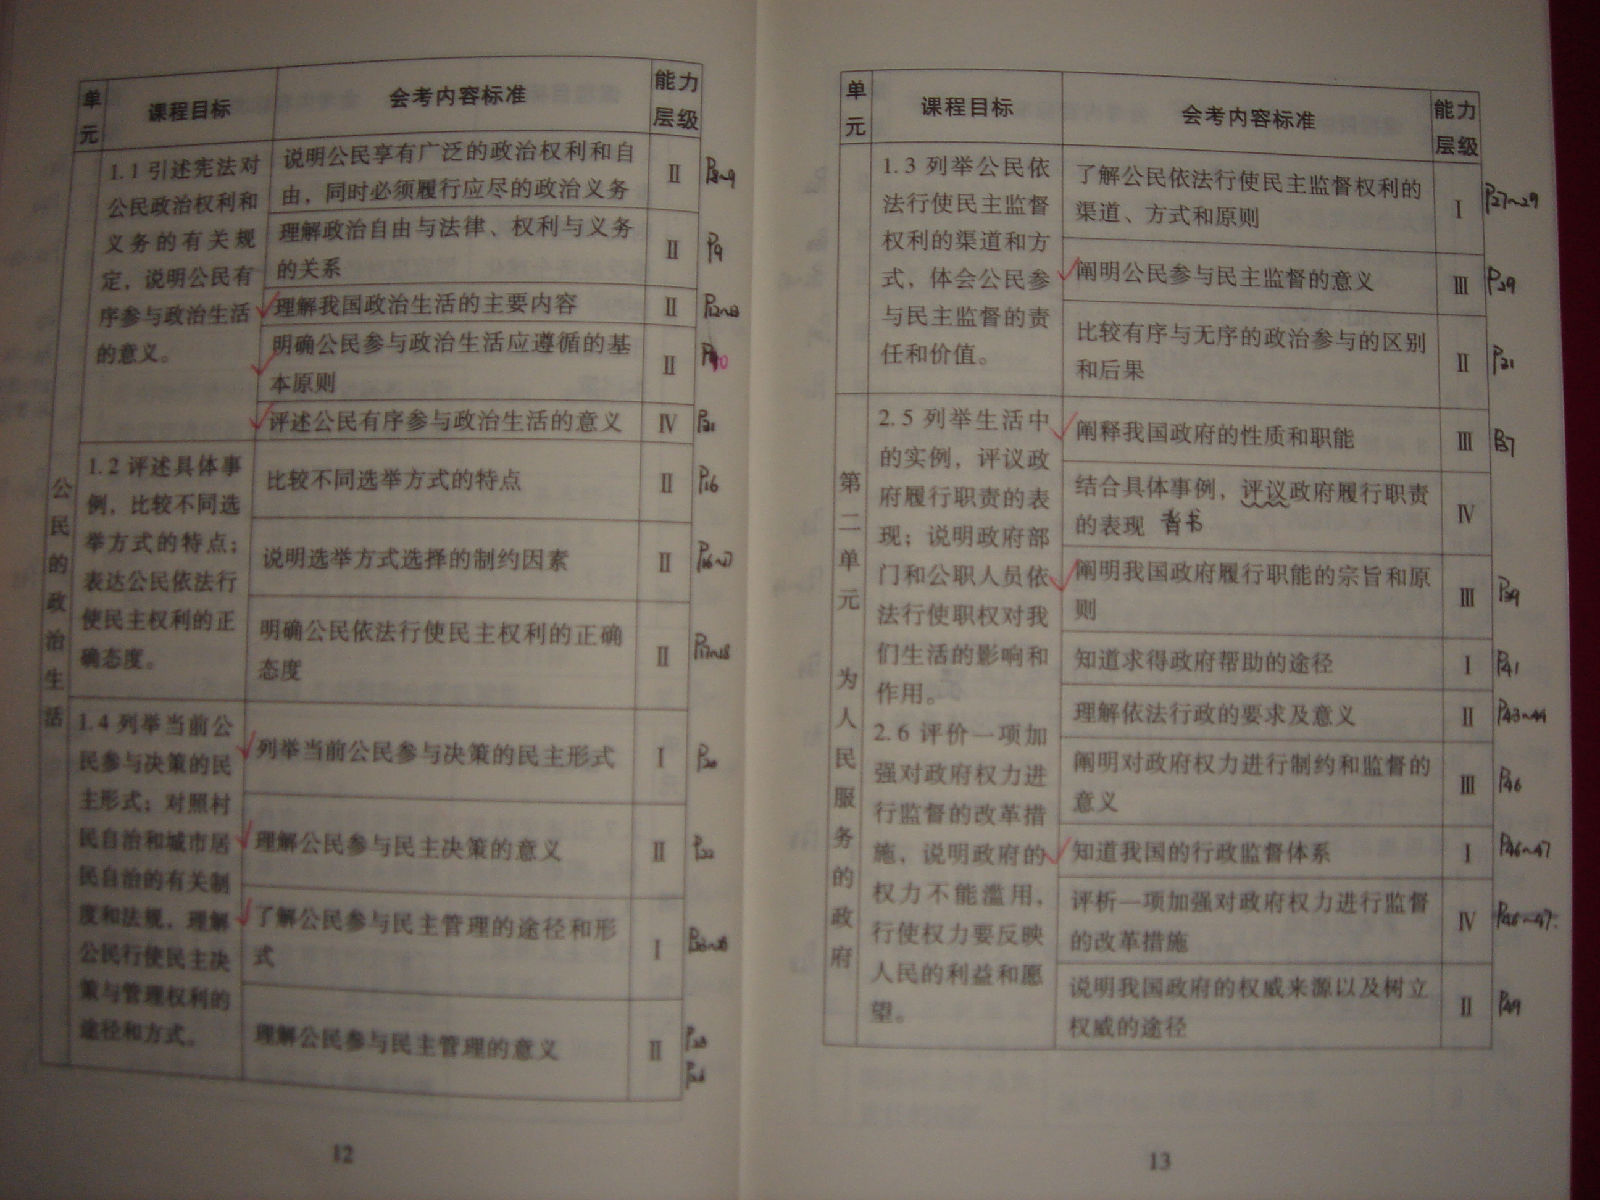 单元
课程目标
会考内容标准
能力层级
公民的政治生活
1.1 引述宪法对
公民政治权利和
义务的有关规
定，说明公民有
序参与政治生活
的意义。
说明公民享有广泛的政治权利和自
由，同时必须履行应尽的政治义务
Ⅱ
P8~9
理解政治自由与法律、权利与义务
的关系
Ⅱ
P9
理解我国政治生活的主要内容
Ⅱ
明确公民参与政治生活应遵循的基
本原则
Ⅱ
评述公民有序参与政治生活的意义
Ⅳ
1.2 评述具体事
例，比较不同选
举方式的特点；
表达公民依法行
使民主权利的正
确态度。
比较不同选举方式的特点
Ⅱ
P16
说明选举方式选择的制约因素
Ⅱ
P16~17
明确公民依法行使民主权利的正确
态度
Ⅱ
P17~18
1.4 列举当前公
民参与决策的民
主形式；对照村
民自治和城市居
民自治的有关制
度和法规，理解
公民行使民主决
策与管理权利的
途径和方式。
列举当前公民参与决策的民主形式
Ⅰ
P20
理解公民参与民主决策的意义
Ⅱ
P22
了解公民参与民主管理的途径和形
式
Ⅰ
理解公民参与民主管理的意义
Ⅱ
12
单元
课程目标
会考内容标准
能力层级
1.3 列举公民依
法行使民主监督
权利的渠道和方
式，体会公民参
与民主监督的责
任和价值。
了解公民依法行使民主监督权利的
渠道、方式和原则
Ⅰ
P27~29
阐明公民参与民主监督的意义
Ⅲ
P29
比较有序与无序的政治参与的区别
和后果
Ⅱ
P31
第二单元 为人民服务的政府
2.5 列举生活中
的实例，评议政
府履行职责的表
现；说明政府部
门和公职人员依
法行使职权对我
们生活的影响和
作用。
2.6 评价一项加
强对政府权力进
行监督的改革措
施，说明政府的
权力不能滥用，
行使权力要反映
人民的利益和愿
望。
阐释我国政府的性质和职能
Ⅲ
P37
结合具体事例，评议政府履行职责
的表现 背书
Ⅳ
阐明我国政府履行职能的宗旨和原
则
Ⅲ
P39
知道求得政府帮助的途径
Ⅰ
P41
理解依法行政的要求及意义
Ⅱ
P43~44
阐明对政府权力进行制约和监督的
意义
Ⅲ
P46
知道我国的行政监督体系
Ⅰ
P46~47
评析一项加强对政府权力进行监督
的改革措施
Ⅳ
说明我国政府的权威来源以及树立
权威的途径
Ⅱ
P49
13